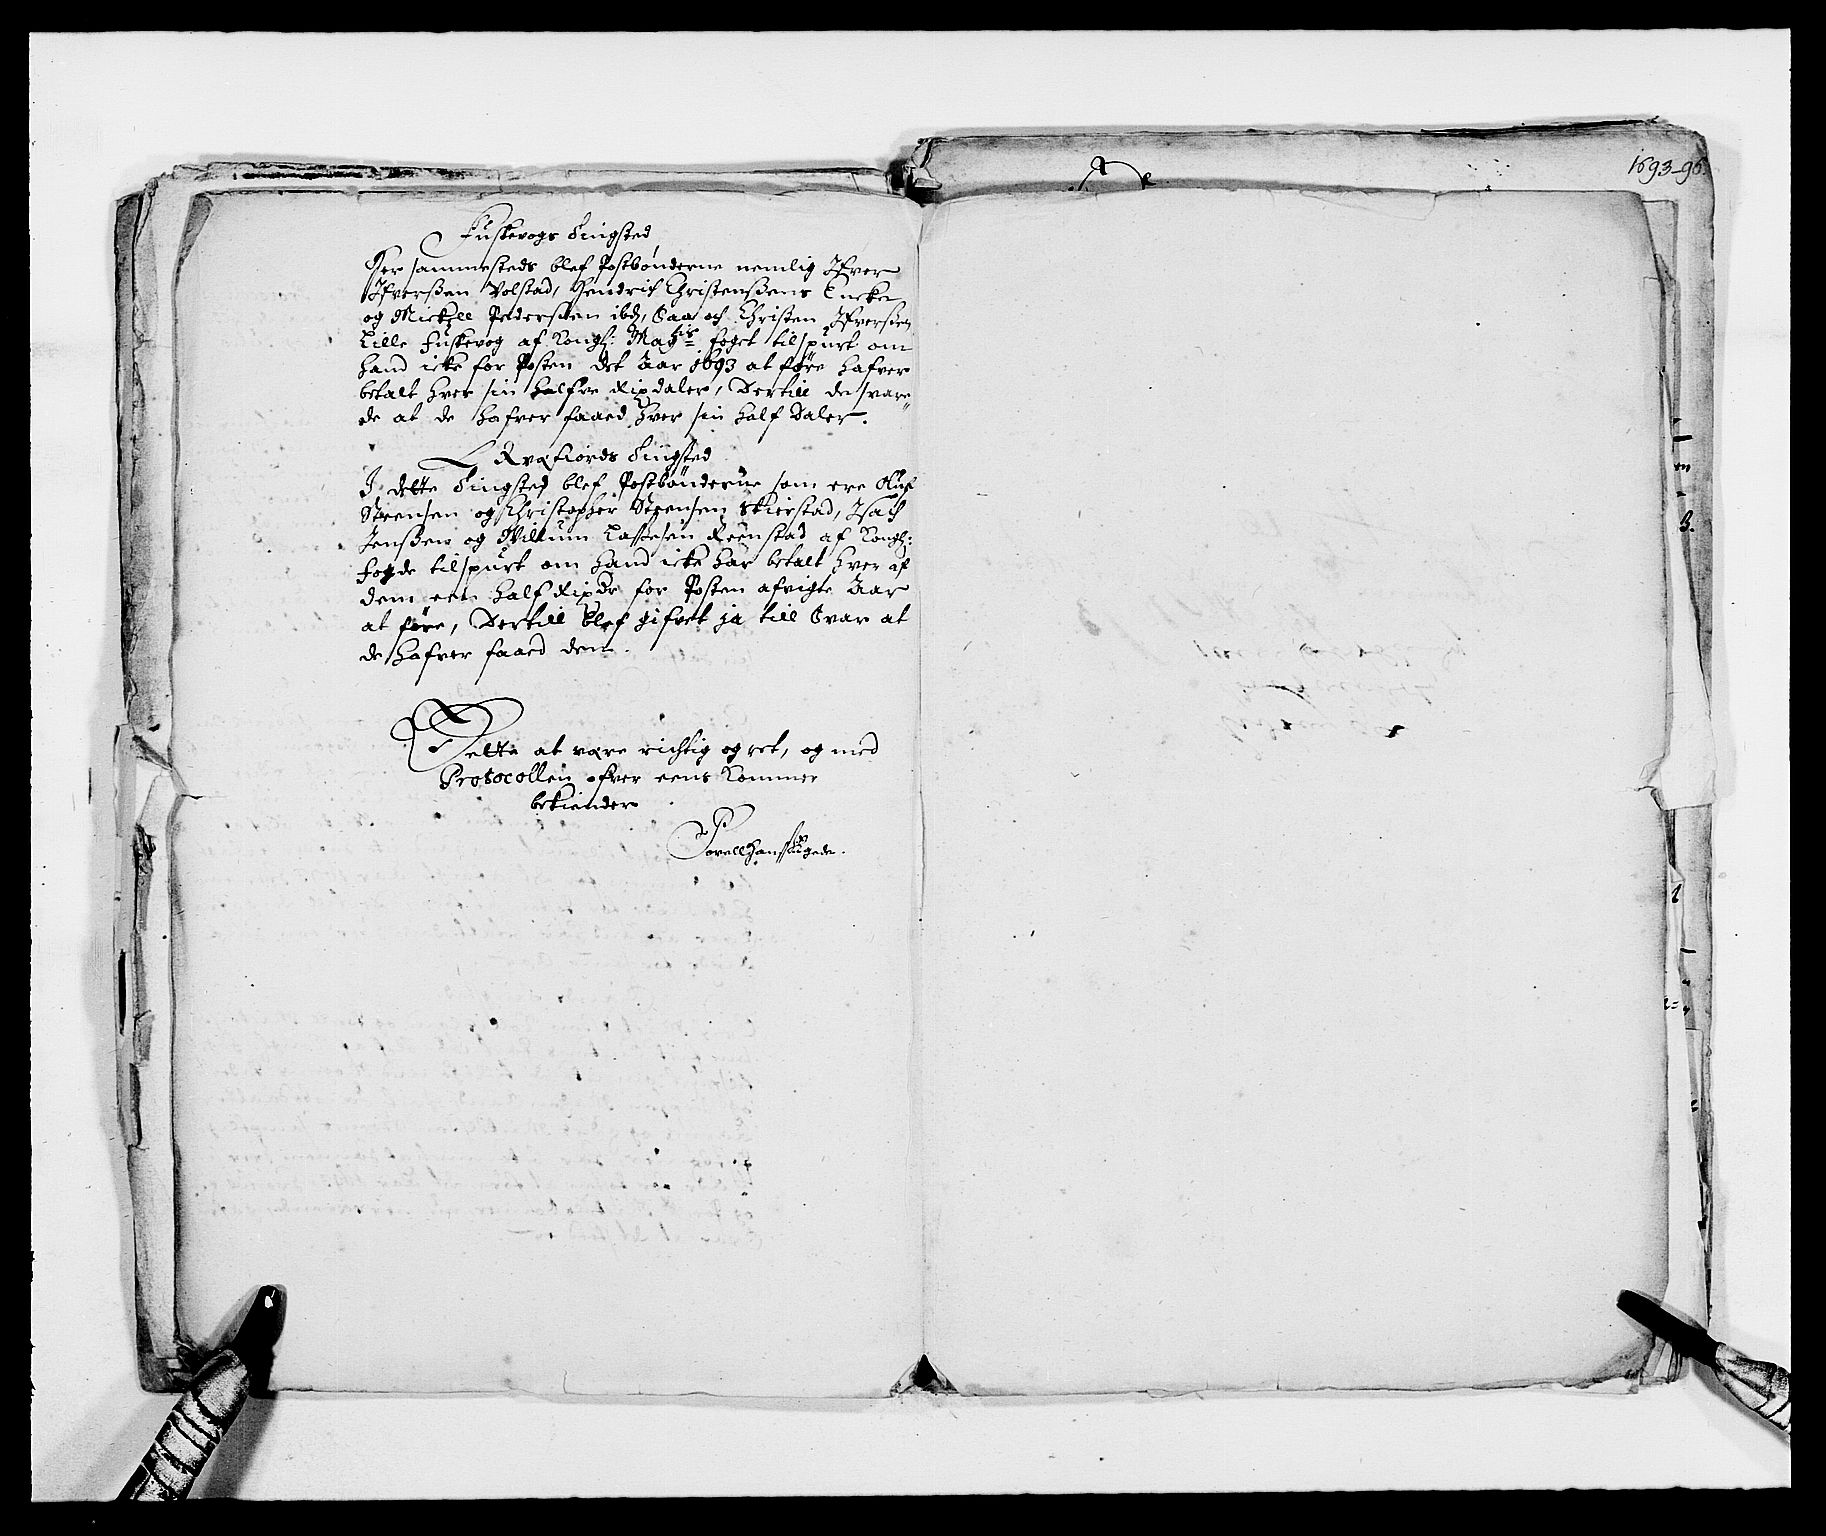 1693-96.
Fuskevogs Tingsted
Her sammesteds blef Postbønderne nemlig Ifver
Ifverßen Volstad, Hendrich Christenßens Encke
og Mickell Pederßen ibd, Saa och Christen Ifverßen
Lille Fuskevog af Kongl: Mayts foget tilspurt om
hand icke for Posten det Aar 1693 at føre hafver
betalt hver sin halfve Rixdaler, Dertill de svare„
de at de hafver faaed hver sin half Daler.
Qvæfiords Tingsted
I dette Tingsted blef Postbønderne som ere Oluf
Steensen og Christopher Steensen Skierstad, Isach
Jenßen og Willum Lassesen Reenstad af Kongl:
fogde tilspurt om hand icke har betalt hver af
dem een half Rixdr for Posten afvigte Aar
at føre, Dertill blef gifvet ja till Svar at
de hafver faaed dem.
Dette at være richtig og ret, og med
Protocollen ofver eens Kommer
bekiender
Povell Hanss Egede.